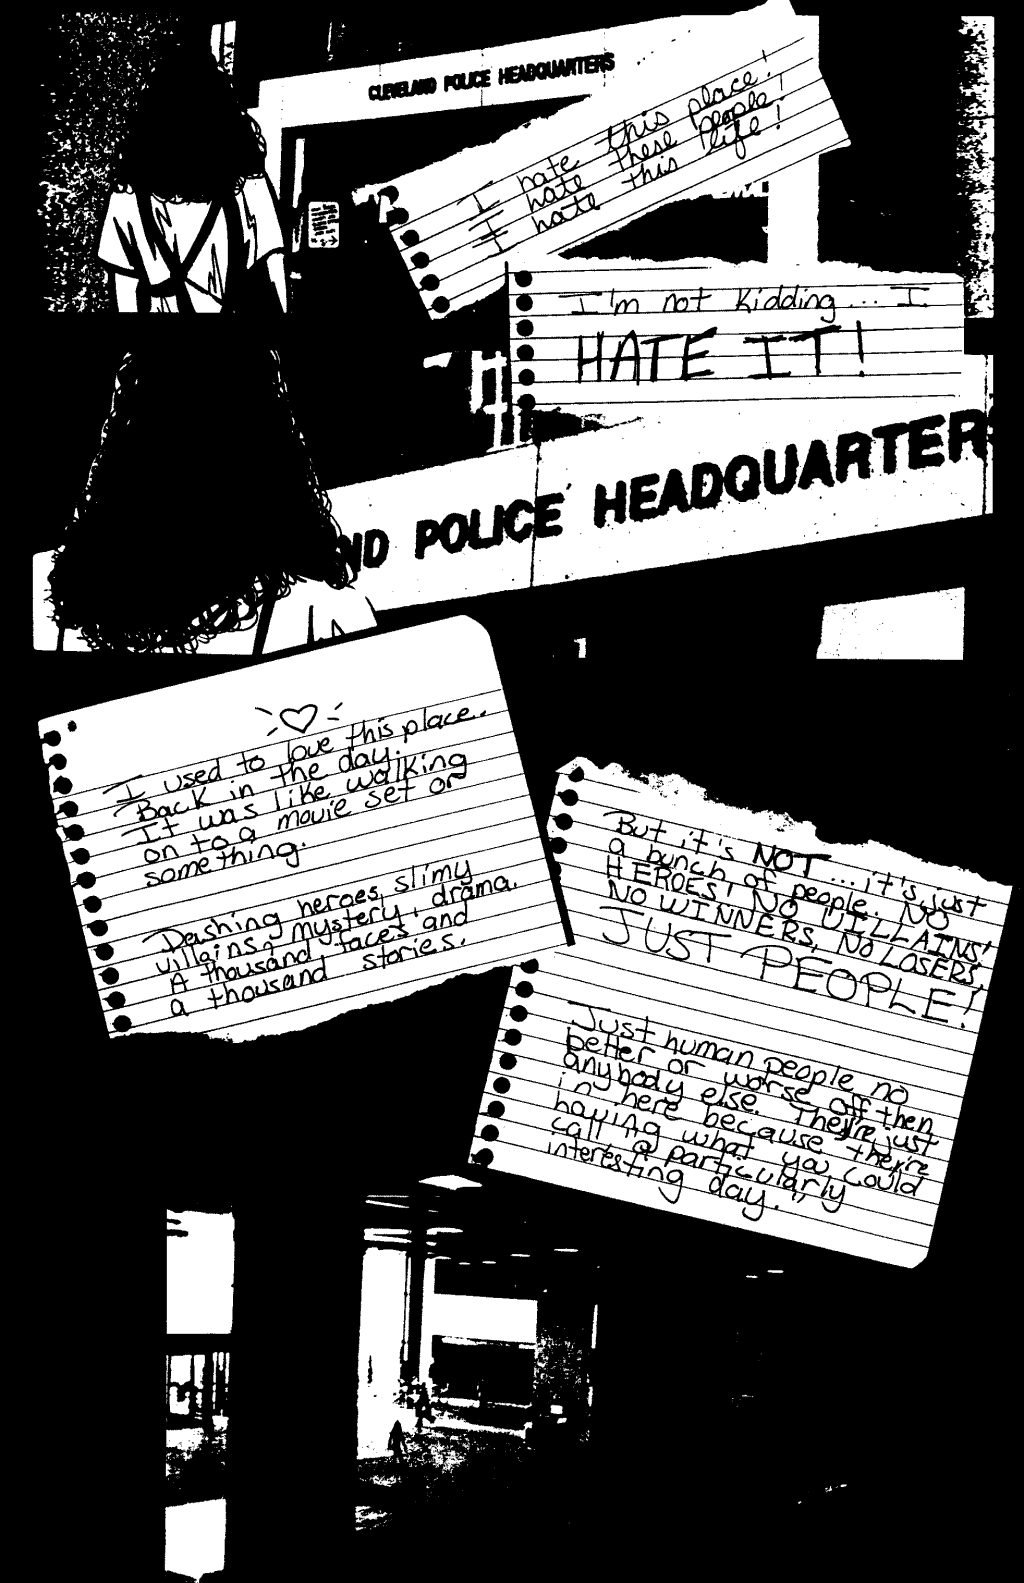 CLEVELAND POLICE HEADQUARTERS
I hate this place!
I hate these people!
I hate this life!
I'm not kidding... I
HATE IT!
ND POLICE HEADQUARTERS
I used to love this place..
Back in the day.
It was like walking
on to a movie set or
something.
Dashing heroes, slimy
villains, mystery, drama.
A thousand faces and
a thousand stories.
But it's NOT...it's just
a bunch of people. NO
HEROES, NO VILLAINS!
NO WINNERS, NO LOSERS,
JUST PEOPLE!
Just human people no
better or worse off then
anybody else. They're just
in here because they're
having what you could
call a particularly
interesting day."